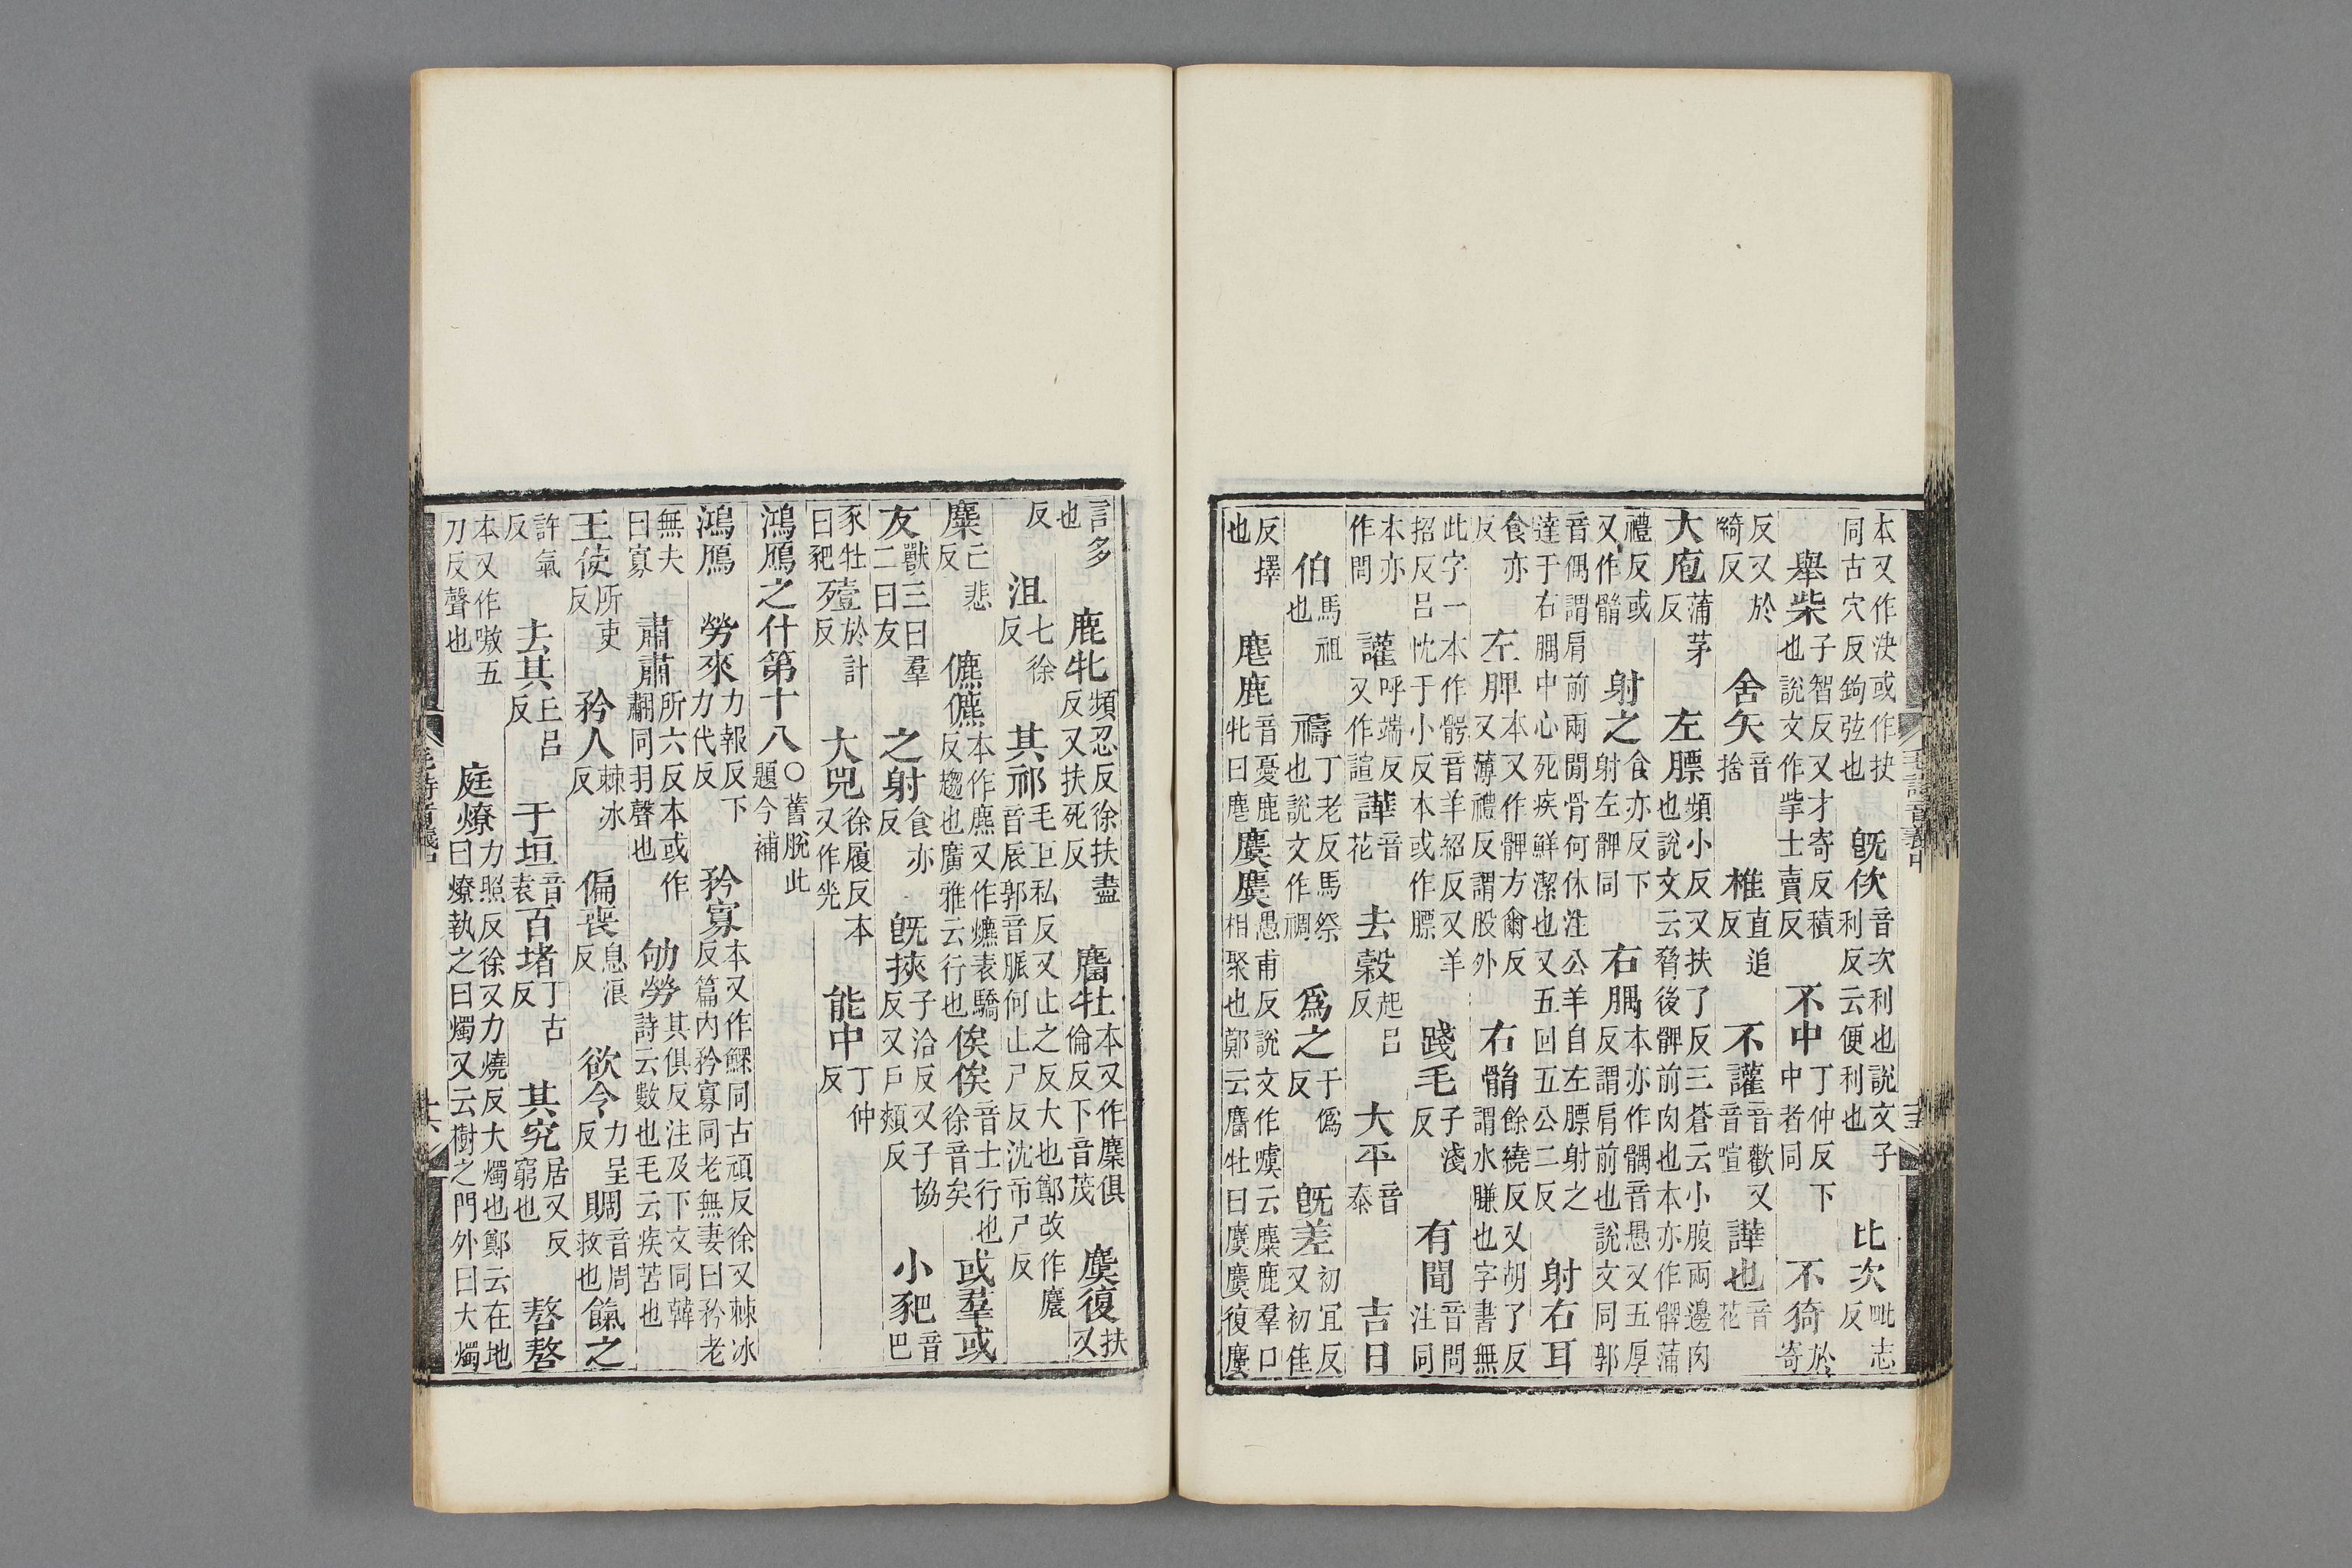 本又作決或作抉同古穴反鉤弦也 既佽音次利也說文子利反云便利也 比次毗志反
舉柴子智反又才寄反積也說文作㧘士賣反 不中丁仲反下中者同 不猗於寄
反又於綺反 舍矢音捨 椎直追反 不讙音歡又音喧 譁也音花
大庖蒲茅反 左膘頻小反又扶了反三蒼云小腹兩邊肉也說文云脅後髀前肉也本亦作髀蒲
禮反或又作䯚 射之食亦反下射左髀同 右腢本亦作髃音愚又五厚反謂肩前也說文同郭
音偶謂肩前兩閒骨何休注公羊自左膘射之達于右腢中心死疾鮮潔也又五回五公二反 射右耳
食亦反 左脾本又作髀方爾反又薄禮反謂股外 右䯚餘繞反又胡了反謂水膁也字書無
此字一本作骻音羊紹反又羊招反呂忱于小反本或作膘 踐毛子淺反 有聞音問注同
本亦作閒 讙呼端反又作諠 譁音花 去穀起呂反 大平音泰 吉日
伯馬祖也 禱丁老反馬祭也說文作禂 爲之于僞反 既差初宜反又初佳
反擇也 麀鹿音憂鹿牝曰麀 麌麌愚甫反說文作噳云麋鹿羣口相聚也鄭云麕牡曰麌麌復麌
言多也 鹿牝頻忍反徐扶盡反又扶死反 麕牡本又作麇俱倫反下音茂 麌復扶又
反 沮七徐反 其祁毛巨私反又止之反大也鄭改作麎音辰郭音脤何止尸反沈市尸反
麋亡悲反 儦儦本作麃又作爊表驕反趨也廣雅云行也 俟俟音士行也徐音矣 或羣或
友獸三曰羣二曰友 之射食亦反 既挾子洽反又子協反又戶頰反 小豝音巴
豕牡曰豝 殪於計反 大兕徐履反本又作光 能中丁仲反
鴻鴈之什第十八○舊脫此題今補
鴻鴈 勞來力報反下力代反 矜寡本又作鰥同古頑反徐又棘冰反篇內矜寡同老無妻曰矜老
無夫曰寡 肅肅所六反本或作䎘同羽聲也 劬勞其俱反注及下文同韓詩云數也毛云疾苦也
王使所吏反 矜人棘冰反 偏喪息浪反 欲令力呈反 賙音周救也 餼之
許氣反 去其丘呂反 于垣音袁 百堵丁古反 其究居又反窮也 嗸嗸
本又作嗷五刀反聲也 庭燎力照反徐又力燒反大燭也鄭云在地曰燎執之曰燭又云樹之門外曰大燭